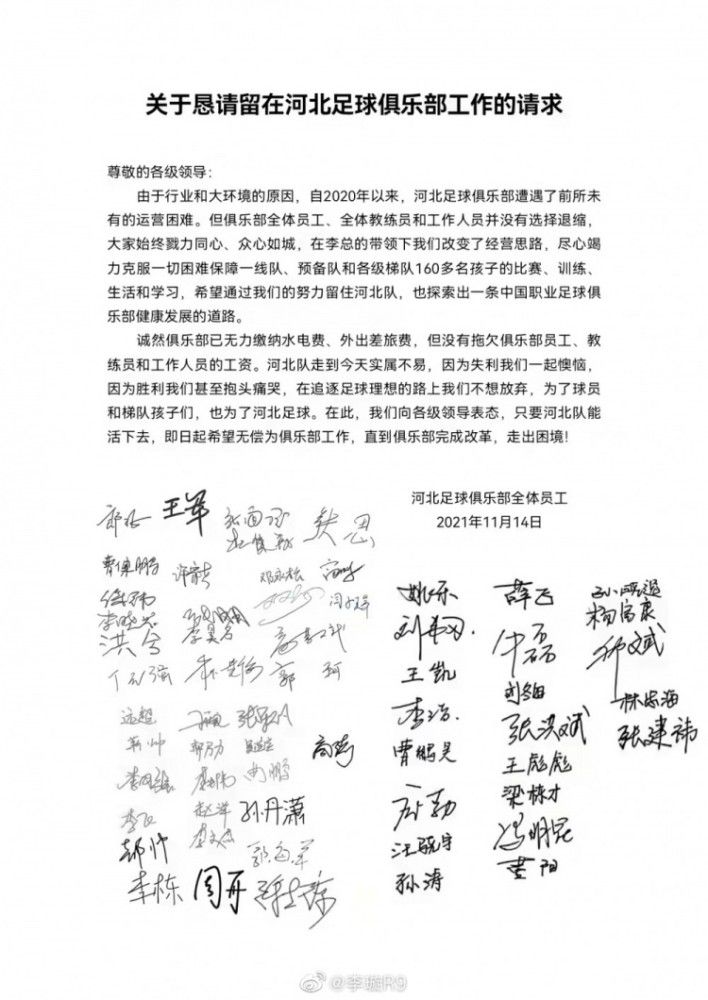 关于恳请留在河北足球俱乐部工作的请求
尊敬的各级领导：
由于行业和大环境的原因，自2020年以来，河北足球俱乐部遭遇了前所未
有的运营困难。但俱乐部全体员工、全体教练员和工作人员并没有选择退缩，
大家始终戮力同心、众心如城，在李总的带领下我们改变了经营思路，尽心竭
力克服一切困难保障一线队、预备队和各级梯队160多名孩子的比赛、训练、
生活和学习，希望通过我们的努力留住河北队，也探索出一条中国职业足球俱
乐部健康发展的道路。
诚然俱乐部已无力缴纳水电费、外出差旅费，但没有拖欠俱乐部员工、教
练员和工作人员的工资。河北队走到今天实属不易，因为失利我们一起懊恼，
因为胜利我们甚至抱头痛哭，在追逐足球理想的路上我们不想放弃，为了球员
和梯队孩子们，也为了河北足球。在此，我们向各级领导表态，只要河北队能
活下去，即日起希望无偿为俱乐部工作，直到俱乐部完成改革，走出困境！
河北足球俱乐部全体员工
2021年11月14日
王军
曹鹏
洪兮
郭 珂
远超
孙丹潇
李栋 周丹
姚乐 薛飞
王凯
李浩 刘翔
曹鹏昊 张洪斌
王彪彪
梁栋才
汪晓宇 冯明昆
孙涛 董阳
杨富康
林忠海
张建祎
@李璇R9